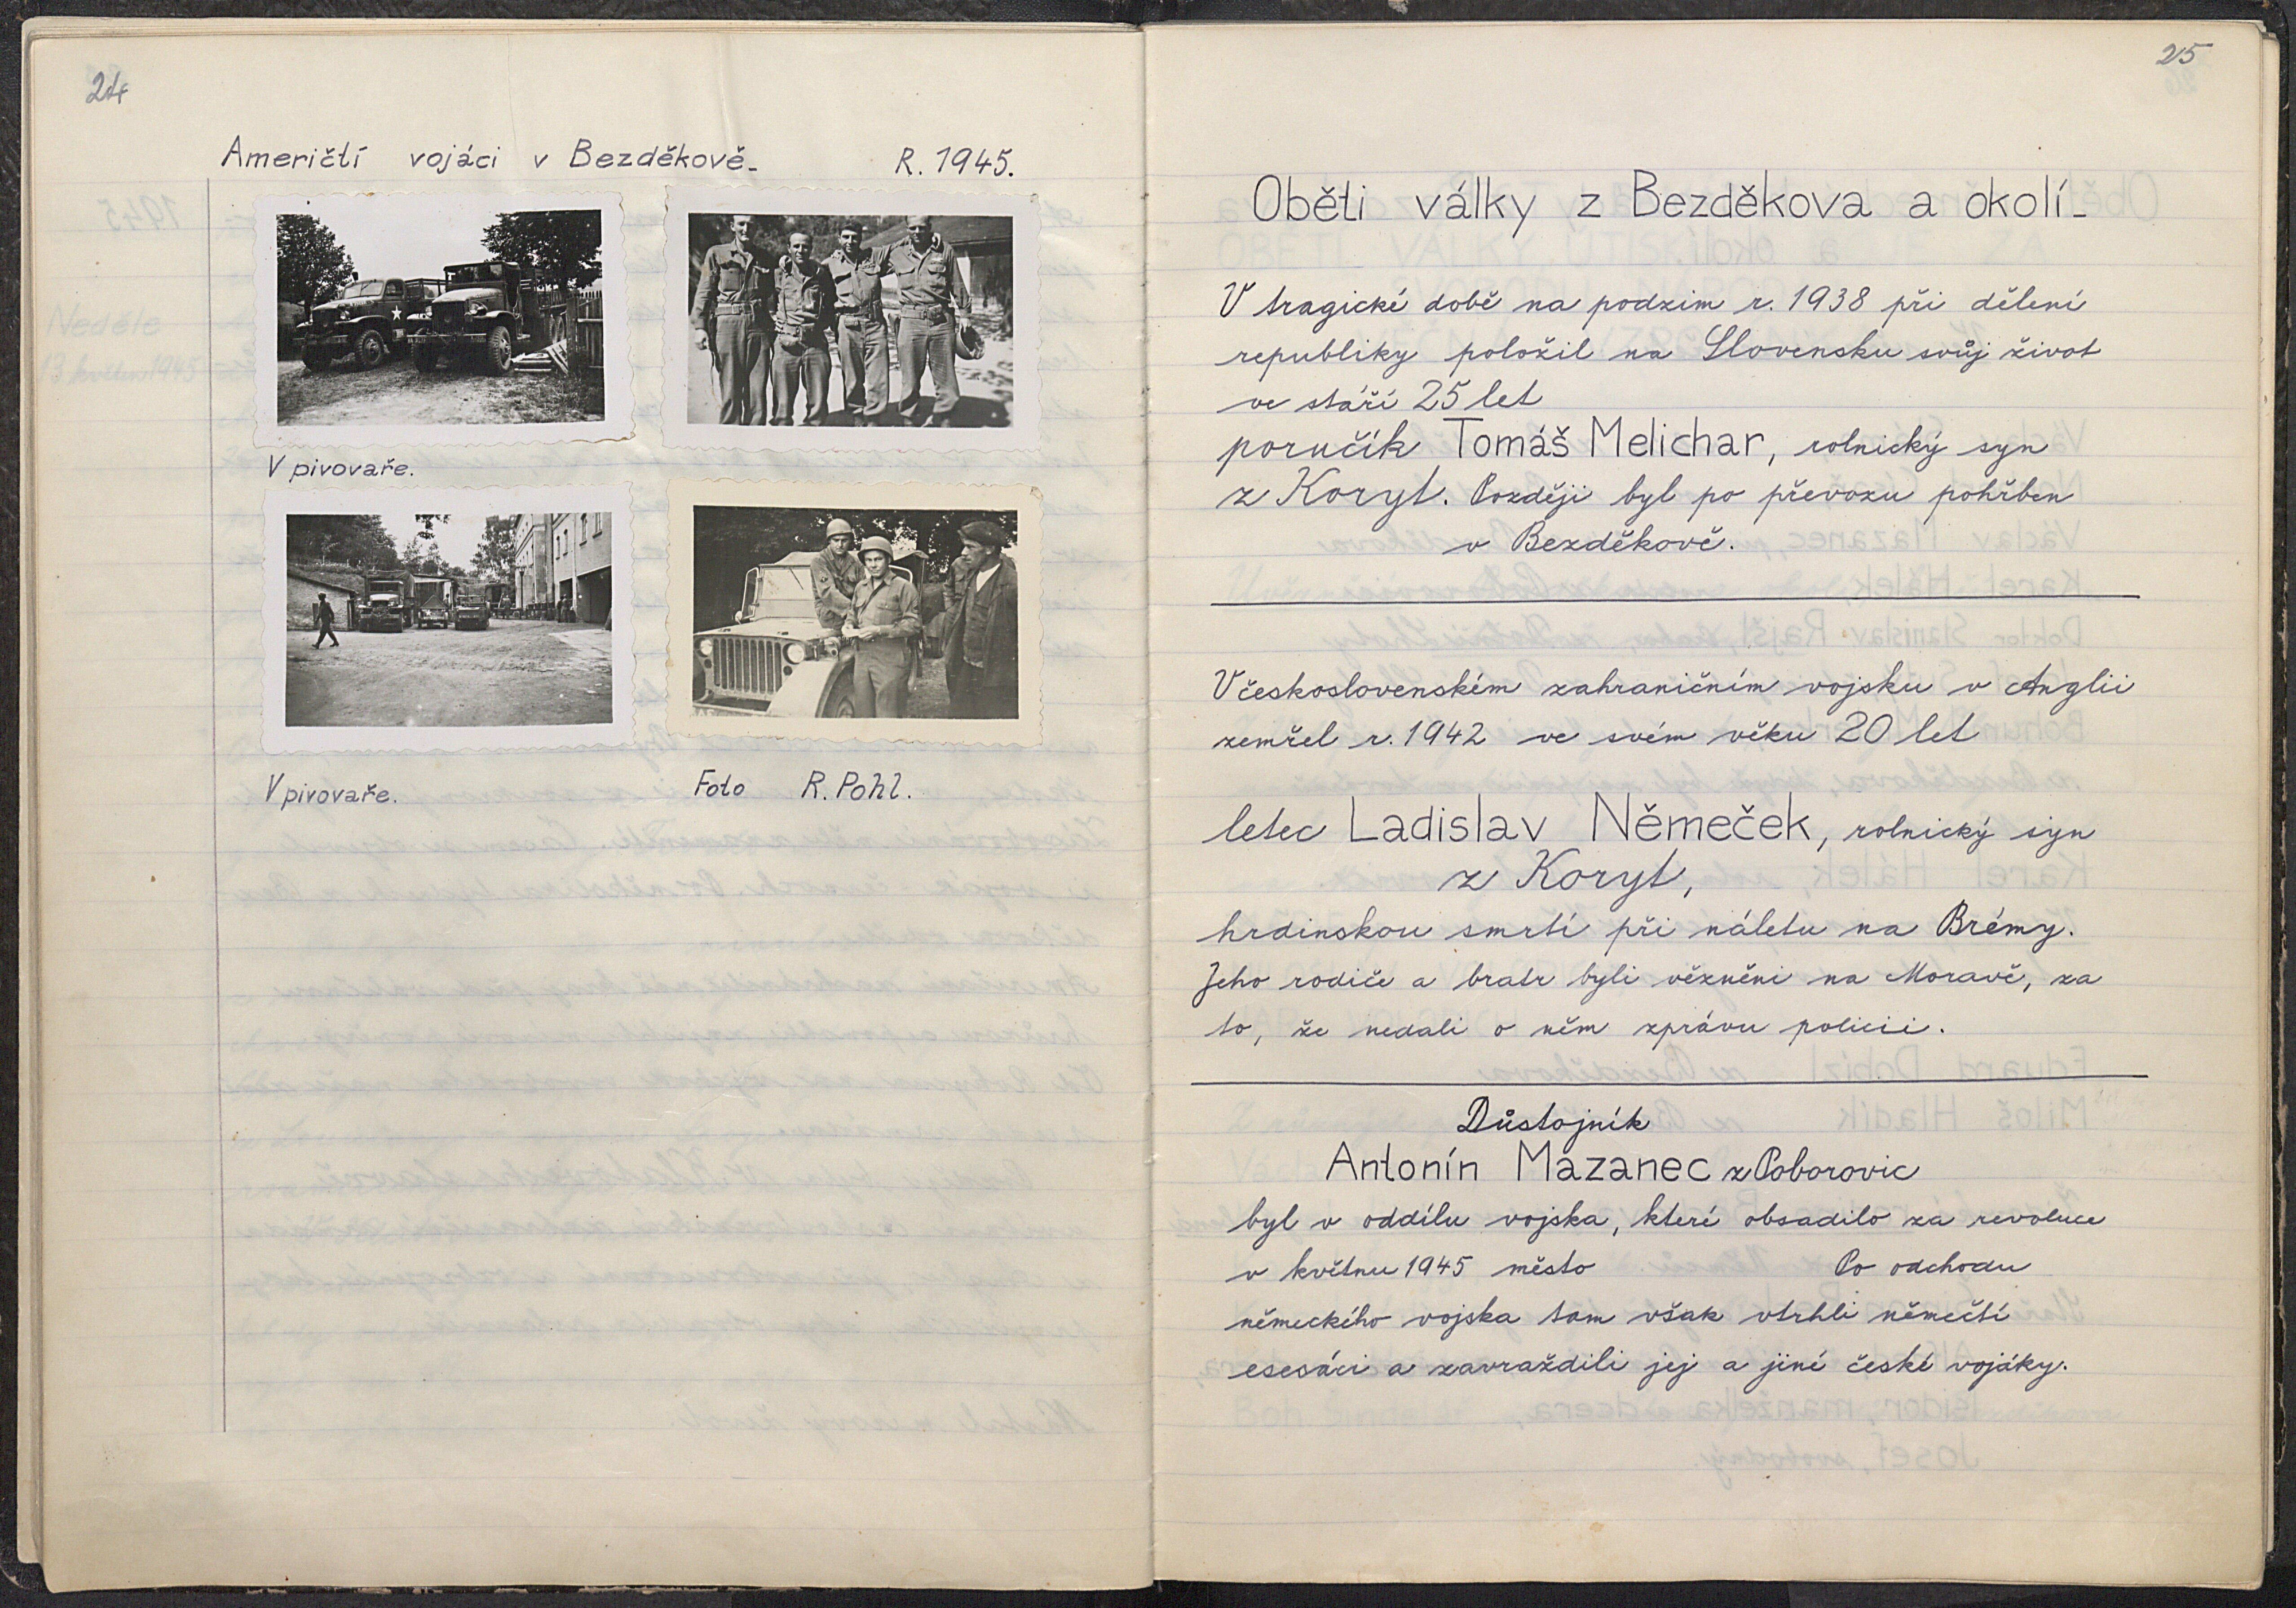 24
Američtí vojáci v Bezděkově_ R. 1945.
V pivovaře.
V pivovaře.
Foto R. Pohl.
25
Oběti války z Bezděkova a okolí_
V tragické době na podzim r. 1938 při dělení
republiky položil na Slovensku svůj život
ve stáří 25 let
poručík Tomáš Melichar, rolnický syn
z Koryt. Později byl po převozu pohřben
v Bezděkově.
V československém zahraničním vojsku v Anglii
zemřel r. 1942 ve svém věku 20 let
letec Ladislav Němeček, rolnický syn
z Koryt,
hrdinskou smrtí při náletu na Brémy.
Jeho rodiče a bratr byli vězněni na Moravě, za
to, že nedali o něm zprávu policii.
Důstojník
Antonín Mazanec z Poborovic
byl v oddílu vojska, které obsadilo za revoluce
v květnu 1945 město Po odchodu
německého vojska tam však vtrhli němečtí
esesáci a zavraždili jej a jiné české vojáky.